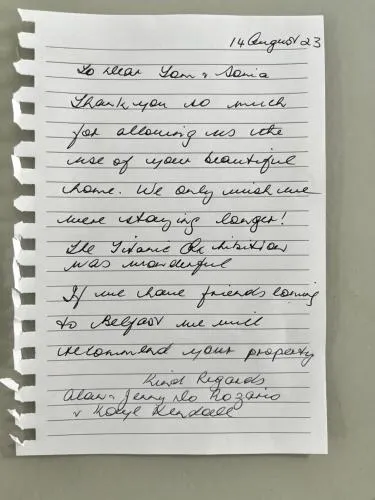 14 August 23
To Dear Tom & Sonia
Thank you so much
for allowing us the
use of your beautiful
home. We only wish we
were staying longer!
The Titanic Exhibition
was wonderful
If we have friends coming
to Belfast we will
recommend your property
Kind Regards
Alan & Jenny Do Rozario
& Kaye Kendall